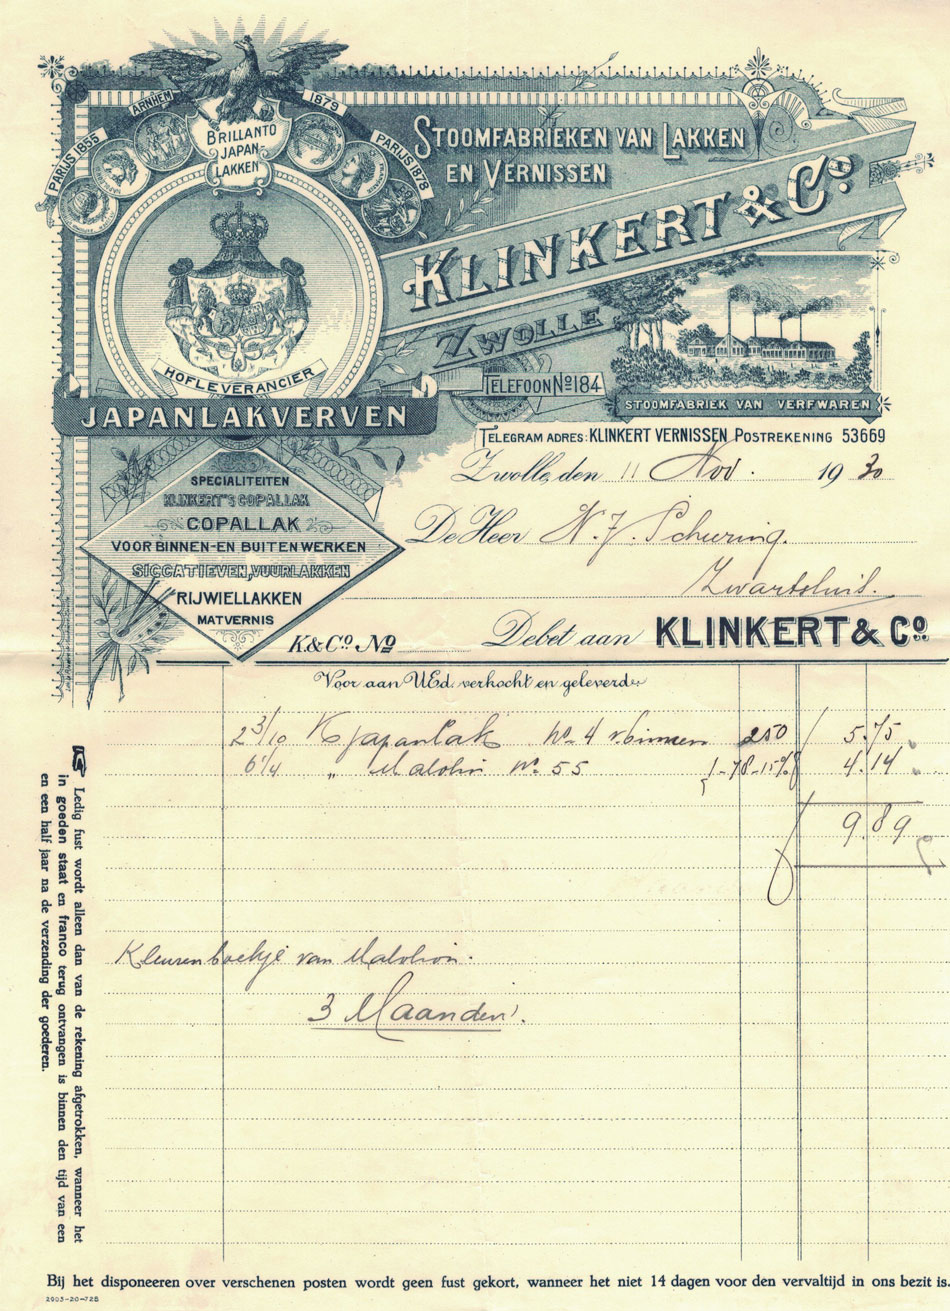 PARIJS 1855
ARNHEM
1879
PARIJS 1878
BRILLANTO
JAPAN-
LAKKEN
STOOMFABRIEKEN VAN LAKKEN
EN VERNISSEN
KLINKERT & Co.
ZWOLLE
TELEFOON No 184
HOFLEVERANCIER
JAPANLAKVERVEN
STOOMFABRIEK VAN VERFWAREN
TELEGRAM ADRES: KLINKERT VERNISSEN POSTREKENING 53669
SPECIALITEITEN
KLINKERT'S COPALLAK
COPALLAK
VOOR BINNEN-EN BUITENWERKEN
SICCATIEVEN, VUURLAKKEN
RIJWIELLAKKEN
MATVERNIS
Zwolle, den 11 Nov. 1930
De Heer N. J. Schuring.
Zwartsluis.
K.& Co. No
Debet aan KLINKERT & Co.
Voor aan UEd. verkocht en geleverd:
2 3/10 K Japanlak No. 4 v. binnen 250 5.75
6 1/4 " Malolin No. 55 1-78-15% 4.14
9.89
Kleurenboekje van Malolin.
3 Maanden.
Ledig fust wordt alleen dan van de rekening afgetrokken, wanneer het
in goeden staat en franco terug ontvangen is binnen den tijd van een
en een half jaar na de verzending der goederen.
Bij het disponeeren over verschenen posten wordt geen fust gekort, wanneer het niet 14 dagen voor den vervaltijd in ons bezit is.
2903-20-728